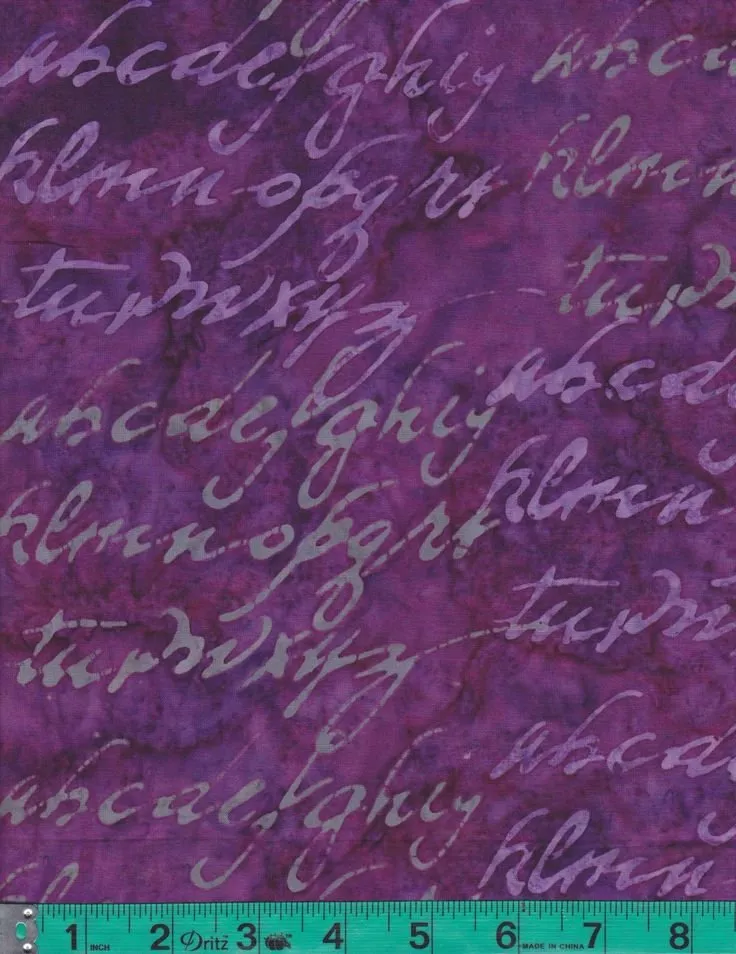 abcdefghij abcd
klmnopqrs klmn
tuvwxyz tuvw
abcdefghij abcd
klmnopqrs klmn
tuvwxyz tuvw
abcdefghij abcd
kl klmn
1 INCH 2 Dritz™ 3 4 5 6 MADE IN CHINA 7 8